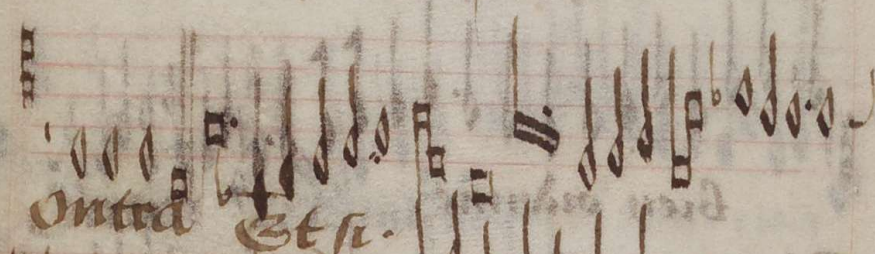 ontra Et si.